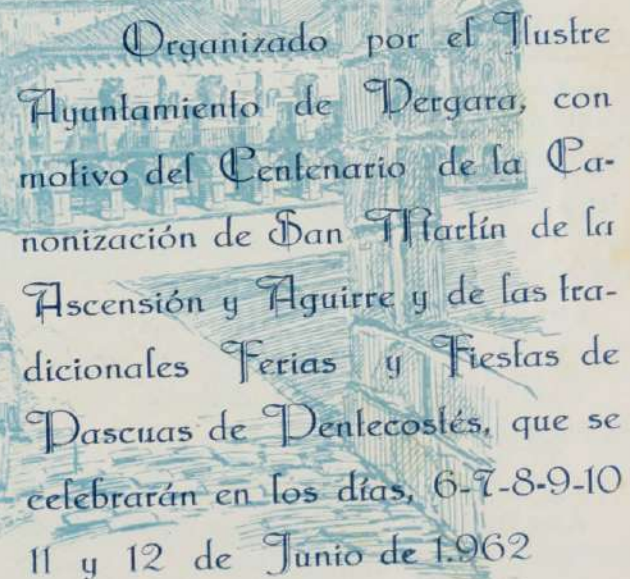 Organizado por el Ilustre
Ayuntamiento de Vergara, con
motivo del Centenario de la Ca-
nonización de San Martín de la
Ascensión y Aguirre y de las tra-
dicionales Ferias y Fiestas de
Pascuas de Pentecostés, que se
celebrarán en los días, 6-7-8-9-10
11 y 12 de Junio de 1.962